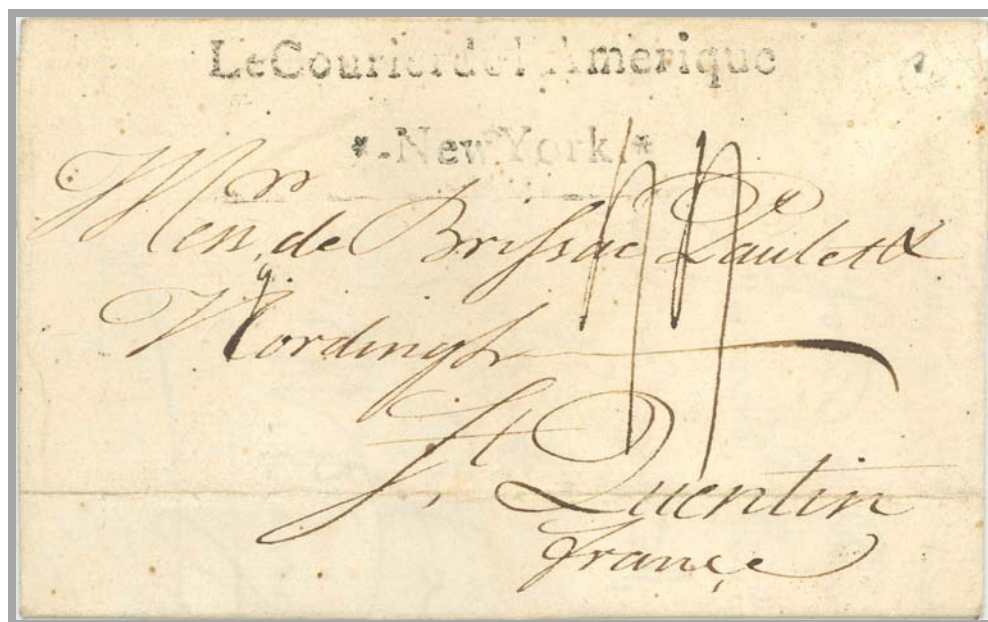 Le Courier de l'Amerique
*.New York.*
Mess.rs de Brissac Paulet &
St. Quentin
France